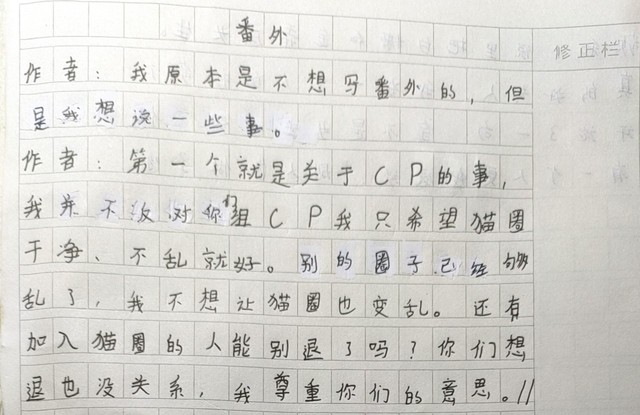 番外
修正栏
作者：我原本是不想写番外的，但
是我想说一些事。
作者：第一个就是关于CP的事，
我并不反对你们组CP我只希望猫圈
干净、不乱就好。别的圈子已经够
乱了，我不想让猫圈也变乱。还有
加入猫圈的人能别退了吗？你们想
退也没关系，我尊重你们的意思。//